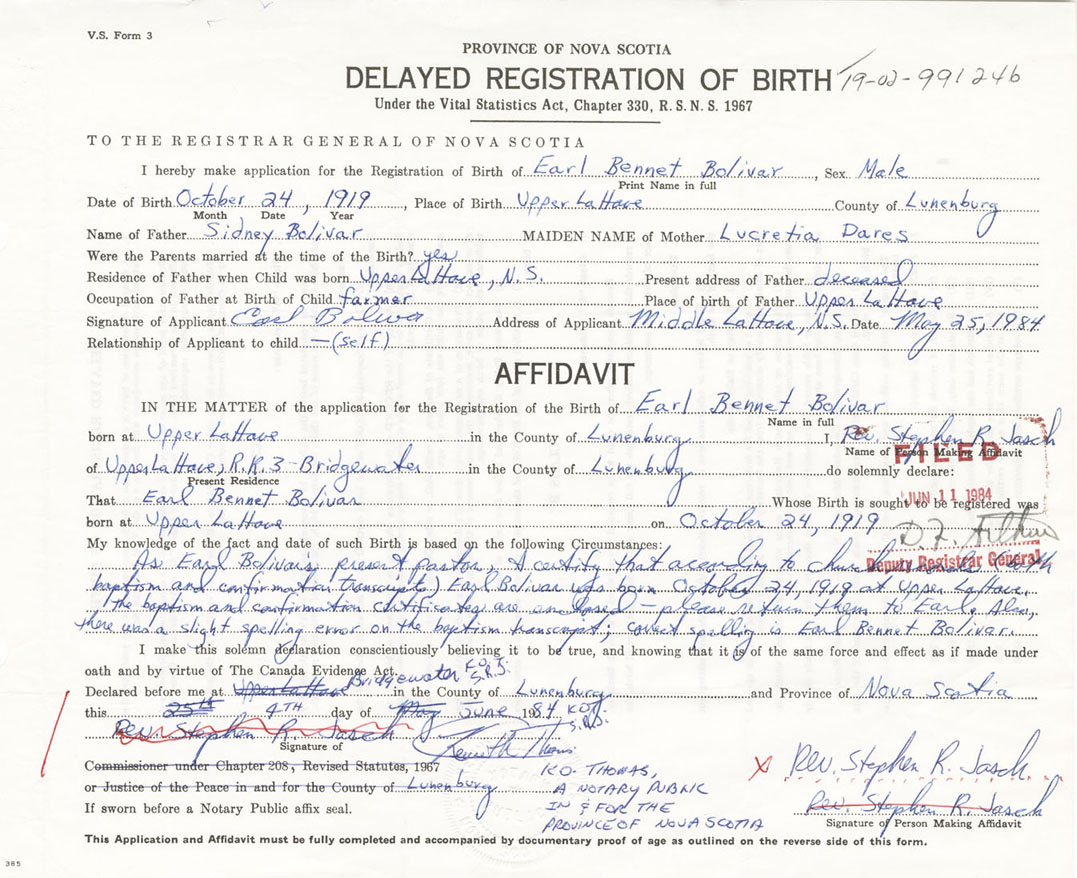 V.S. Form 3
PROVINCE OF NOVA SCOTIA
DELAYED REGISTRATION OF BIRTH 19-02-991246
Under the Vital Statistics Act, Chapter 330, R.S.N.S. 1967
TO THE REGISTRAR GENERAL OF NOVA SCOTIA
I hereby make application for the Registration of Birth of Earl Bennet Bolivar, Sex Male
Print Name in full
Date of Birth October 24, 1919, Place of Birth Upper LaHave County of Lunenburg
Month Date Year
Name of Father Sidney Bolivar MAIDEN NAME of Mother Lucretia Dares
Were the Parents married at the time of the Birth? yes
Residence of Father when Child was born Upper LaHave, N.S. Present address of Father deceased
Occupation of Father at Birth of Child farmer Place of birth of Father Upper LaHave
Signature of Applicant Earl Bolivar Address of Applicant Middle LaHave, N.S. Date May 25, 1984
Relationship of Applicant to child —(self)
AFFIDAVIT
IN THE MATTER of the application for the Registration of the Birth of Earl Bennet Bolivar
Name in full
born at Upper LaHave in the County of Lunenburg I, Rev. Stephen R. Jasch
Name of Person Making Affidavit
FILED
of Upper LaHave, R.R.3 - Bridgewater in the County of Lunenburg do solemnly declare:
Present Residence
JUN 11 1984
That Earl Bennet Bolivar Whose Birth is sought to be registered was
born at Upper LaHave on October 24, 1919
My knowledge of the fact and date of such Birth is based on the following Circumstances:
Deputy Registrar General
As Earl Bolivar's present pastor, I certify that according to church
baptism and confirmation transcripts) Earl Bolivar was born October 24, 1919 at Upper LaHave.
The baptism and confirmation certificates are enclosed - please return them to Earl. Also,
there was a slight spelling error on the baptism transcript; correct spelling is Earl Bennet Bolivar.
I make this solemn declaration conscientiously believing it to be true, and knowing that it is of the same force and effect as if made under
oath and by virtue of The Canada Evidence Act.
Bridgewater K.O.T. S.R.J.
Declared before me at Upper LaHave in the County of Lunenburg and Province of Nova Scotia
this 25th 4TH day of May June 1984 K.O.T.
S.R.J.
Rev. Stephen R. Jasch
Signature of
Commissioner under Chapter 208, Revised Statutes, 1967
or Justice of the Peace in and for the County of Lunenburg
If sworn before a Notary Public affix seal.
K.O. THOMAS,
A NOTARY PUBLIC
IN & FOR THE
PROVINCE OF NOVA SCOTIA
x Rev. Stephen R. Jasch
Rev. Stephen R. Jasch
Signature of Person Making Affidavit
This Application and Affidavit must be fully completed and accompanied by documentary proof of age as outlined on the reverse side of this form.
385